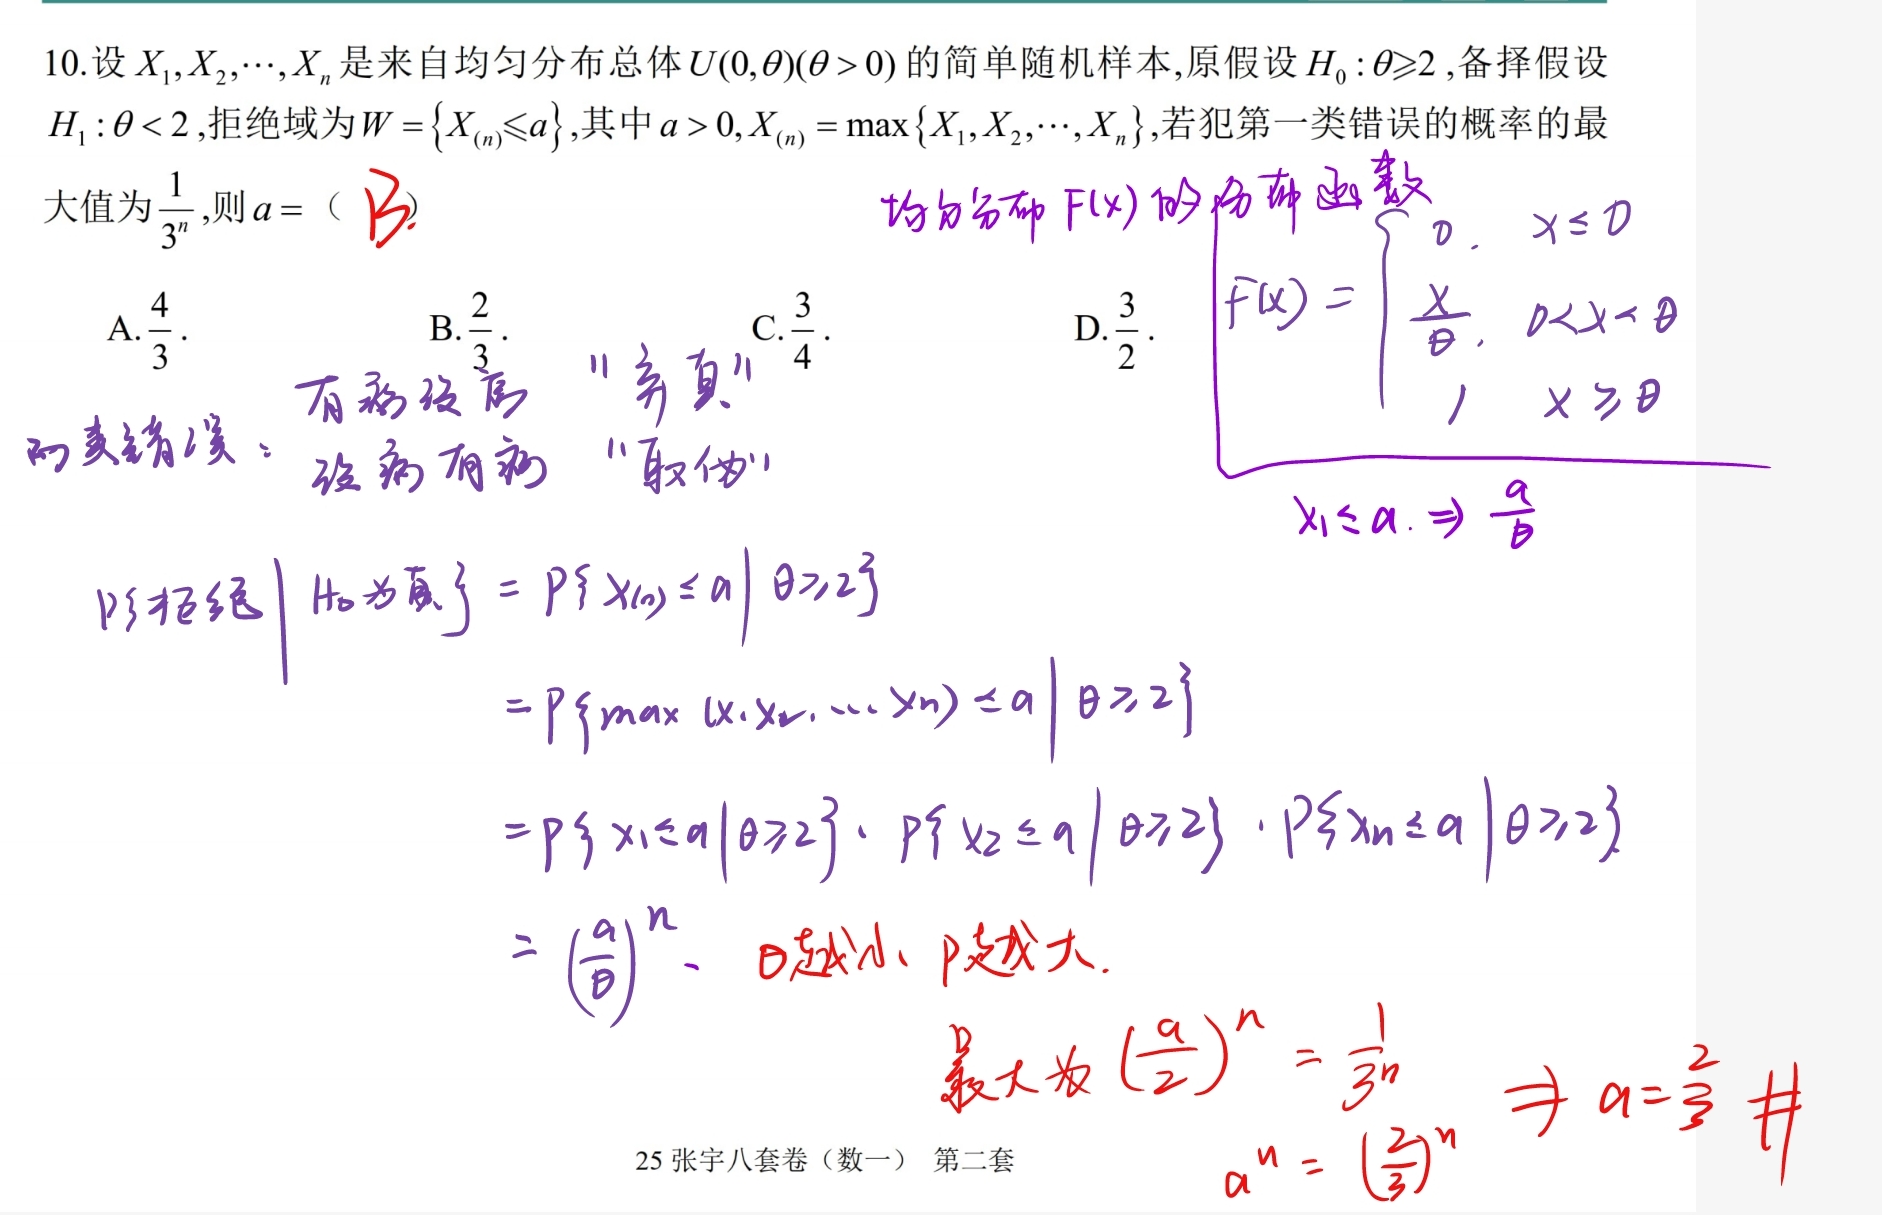 10.设 X₁,X₂,⋯,Xₙ 是来自均匀分布总体 U(0,θ)(θ>0) 的简单随机样本,原假设 H₀:θ⩾2,备择假设
H₁:θ<2,拒绝域为 W={X₍ₙ₎⩽a},其中 a>0,X₍ₙ₎=max{X₁,X₂,⋯,Xₙ},若犯第一类错误的概率的最
大值为 1/3ⁿ,则 a=( B )
A. 4/3 . B. 2/3 . C. 3/4 . D. 3/2 .
均匀分布 F(x) 的分布函数
F(x) = { 0. x≤0
x/θ, 0<x<θ
1 x≥θ
x₁≤a. ⇒ a/θ
两类错误: 有病没病 "弃真"
没病有病 "取伪"
P{拒绝|H₀为真} = P{X(n)≤a|θ≥2}
=P{max(x₁x₂,...xn)≤a|θ≥2}
=P{x₁≤a|θ≥2}·P{x₂≤a|θ≥2}·P{xn≤a|θ≥2}
=(a/θ)ⁿ、 θ越小、P越大.
最大为 (a/2)ⁿ = 1/3ⁿ ⇒ a=2/3 #
aⁿ = (2/3)ⁿ
25 张宇八套卷(数一) 第二套